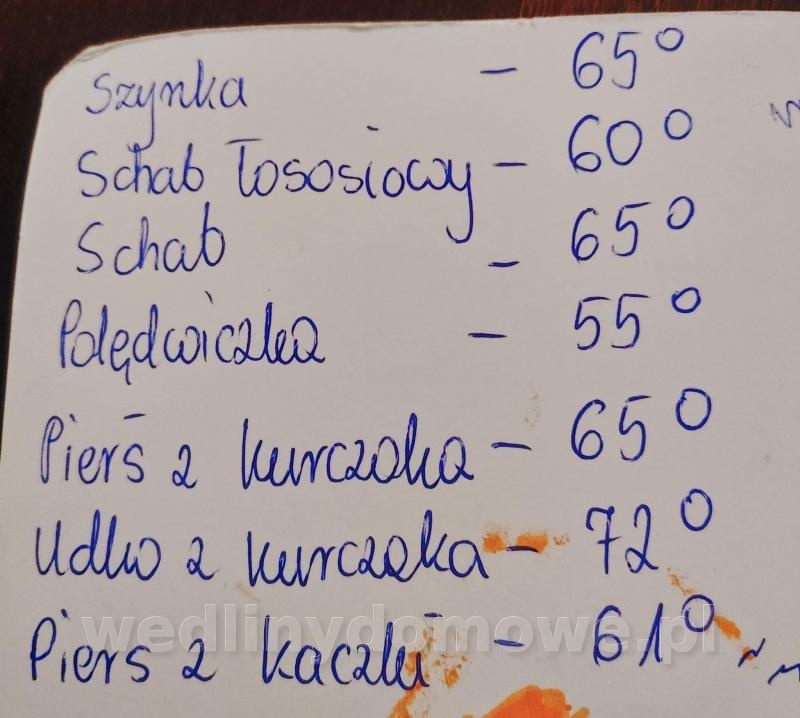 Szynka - 65°
Schab łososiowy - 60°
Schab - 65°
Polędwiczka - 55°
Pierś z kurczaka - 65°
Udko z kurczaka - 72°
Pierś z kaczki - 61°
wedlinydomowe.pl